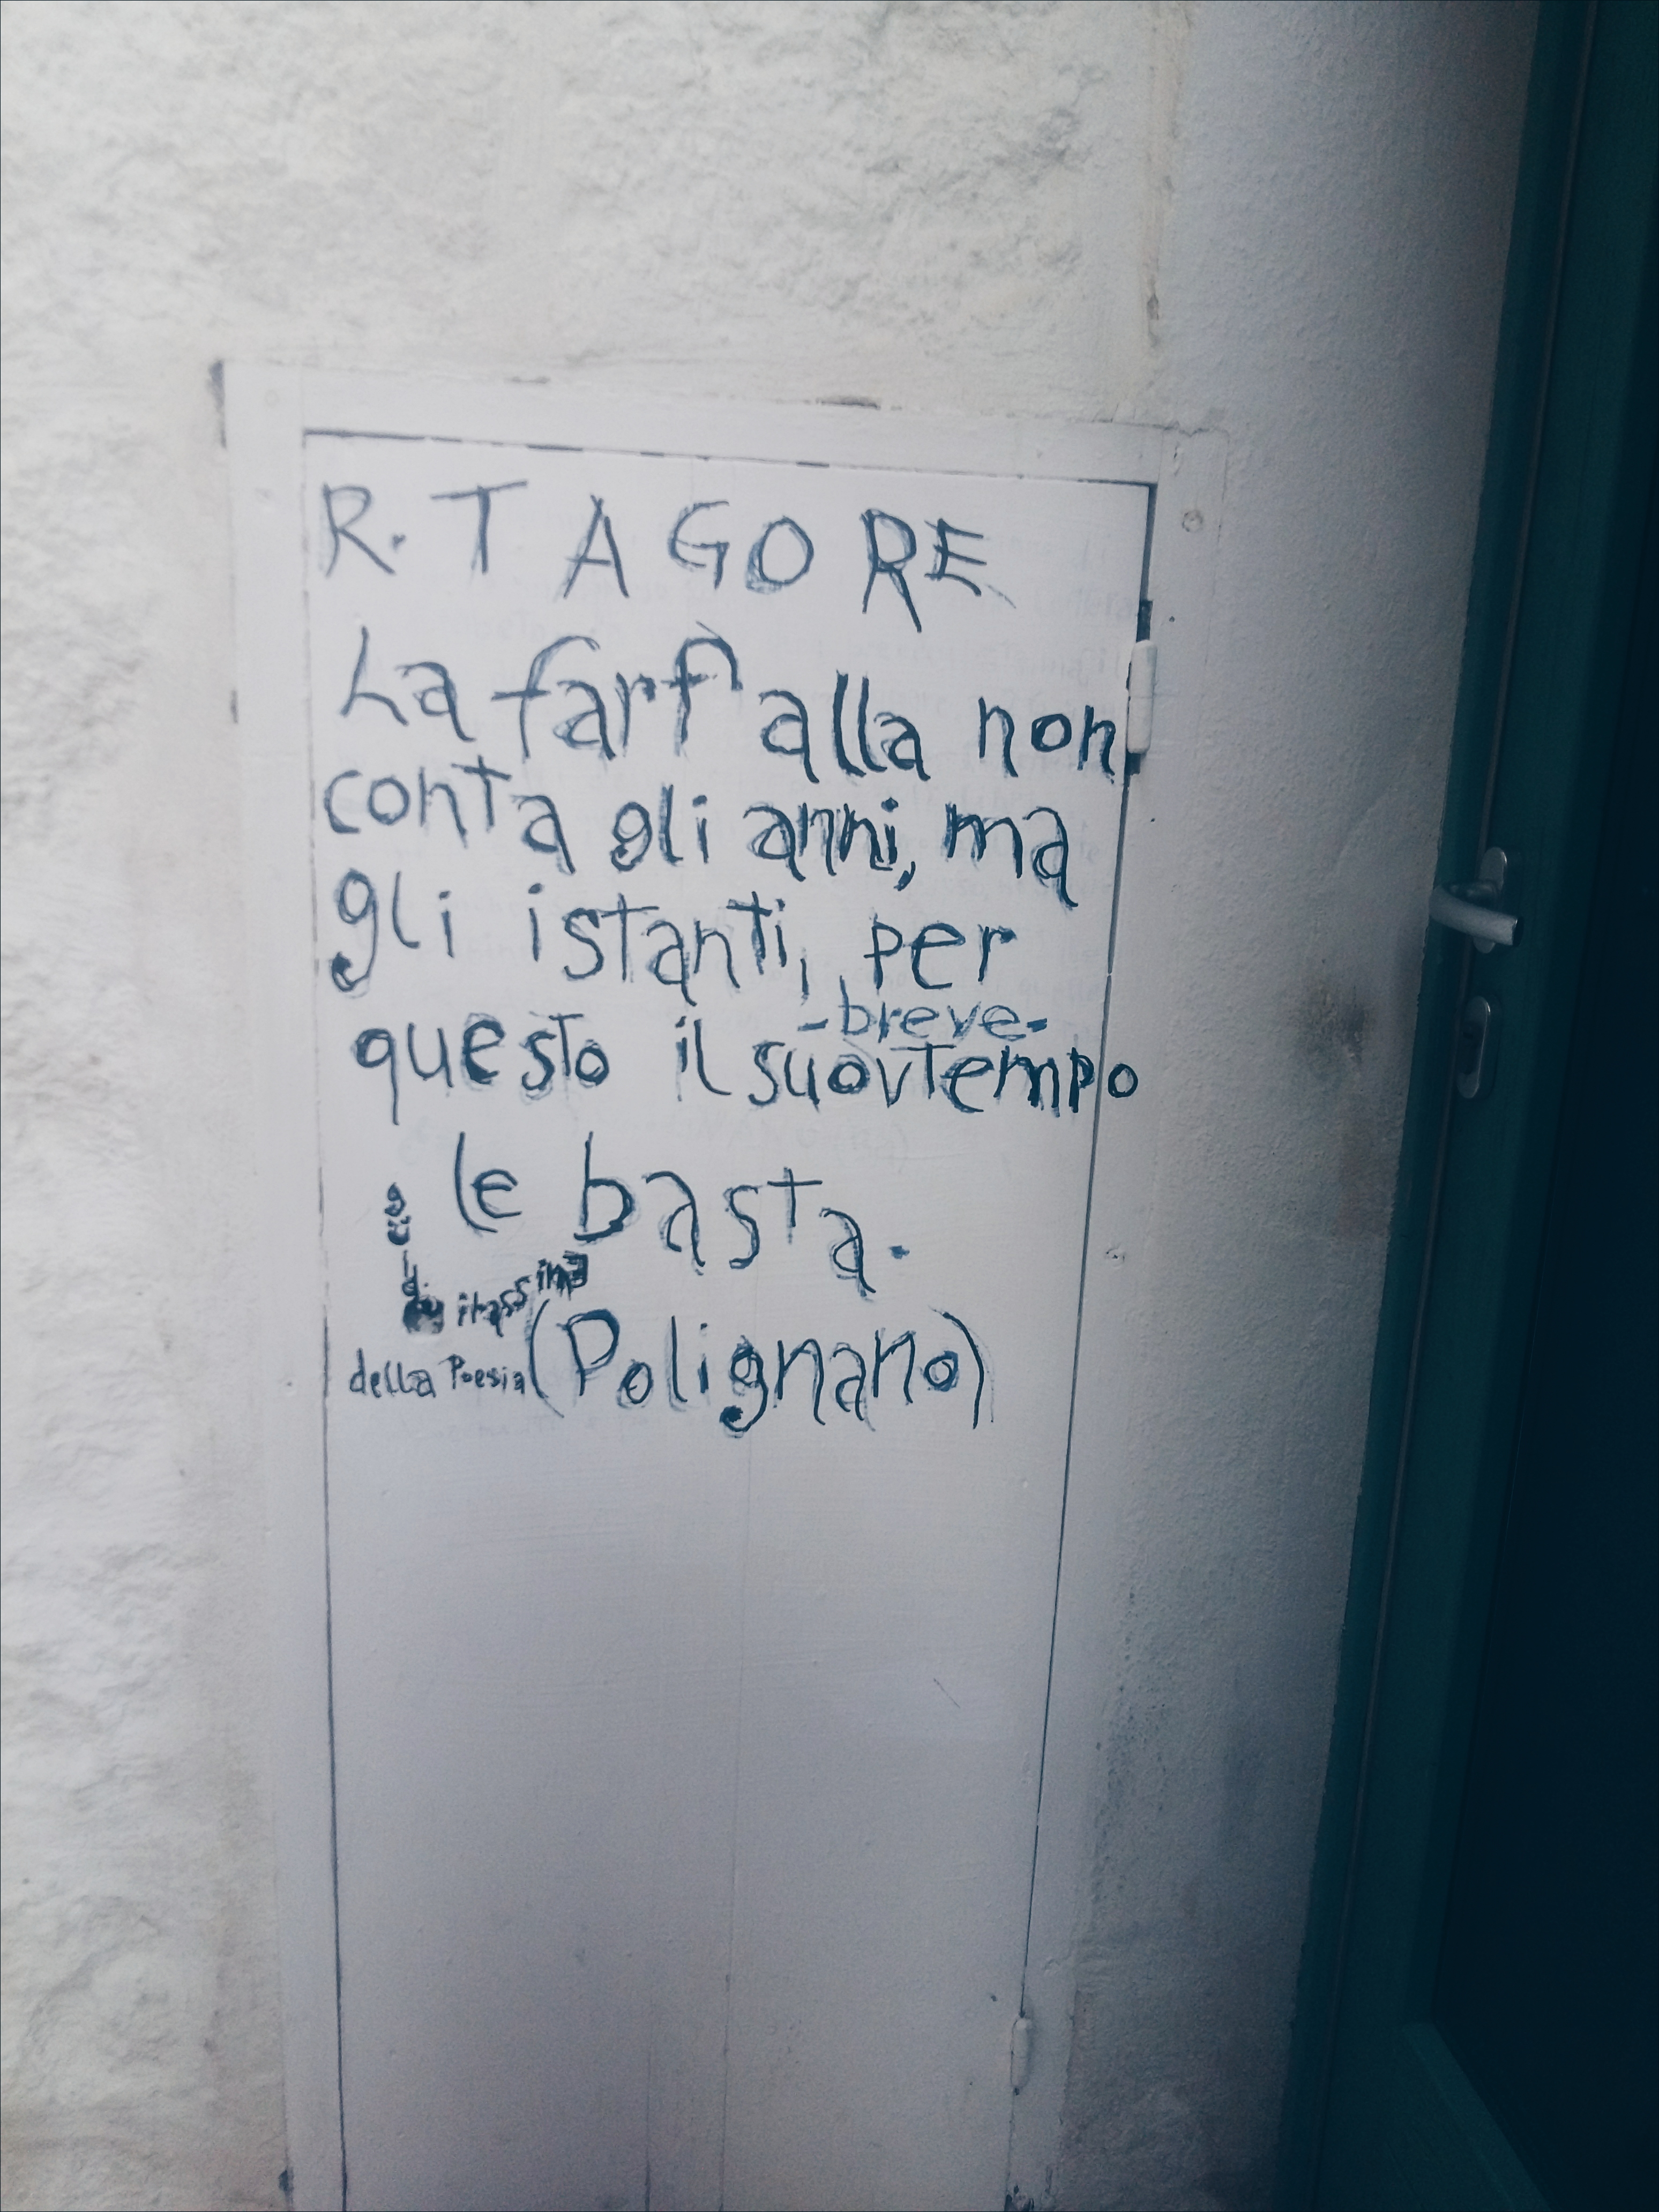 R. TAGORE
La farfalla non
conta gli anni, ma
gli istanti, per
-breve-
questo il suo tempo
le basta.
della Poesia (Polignano)